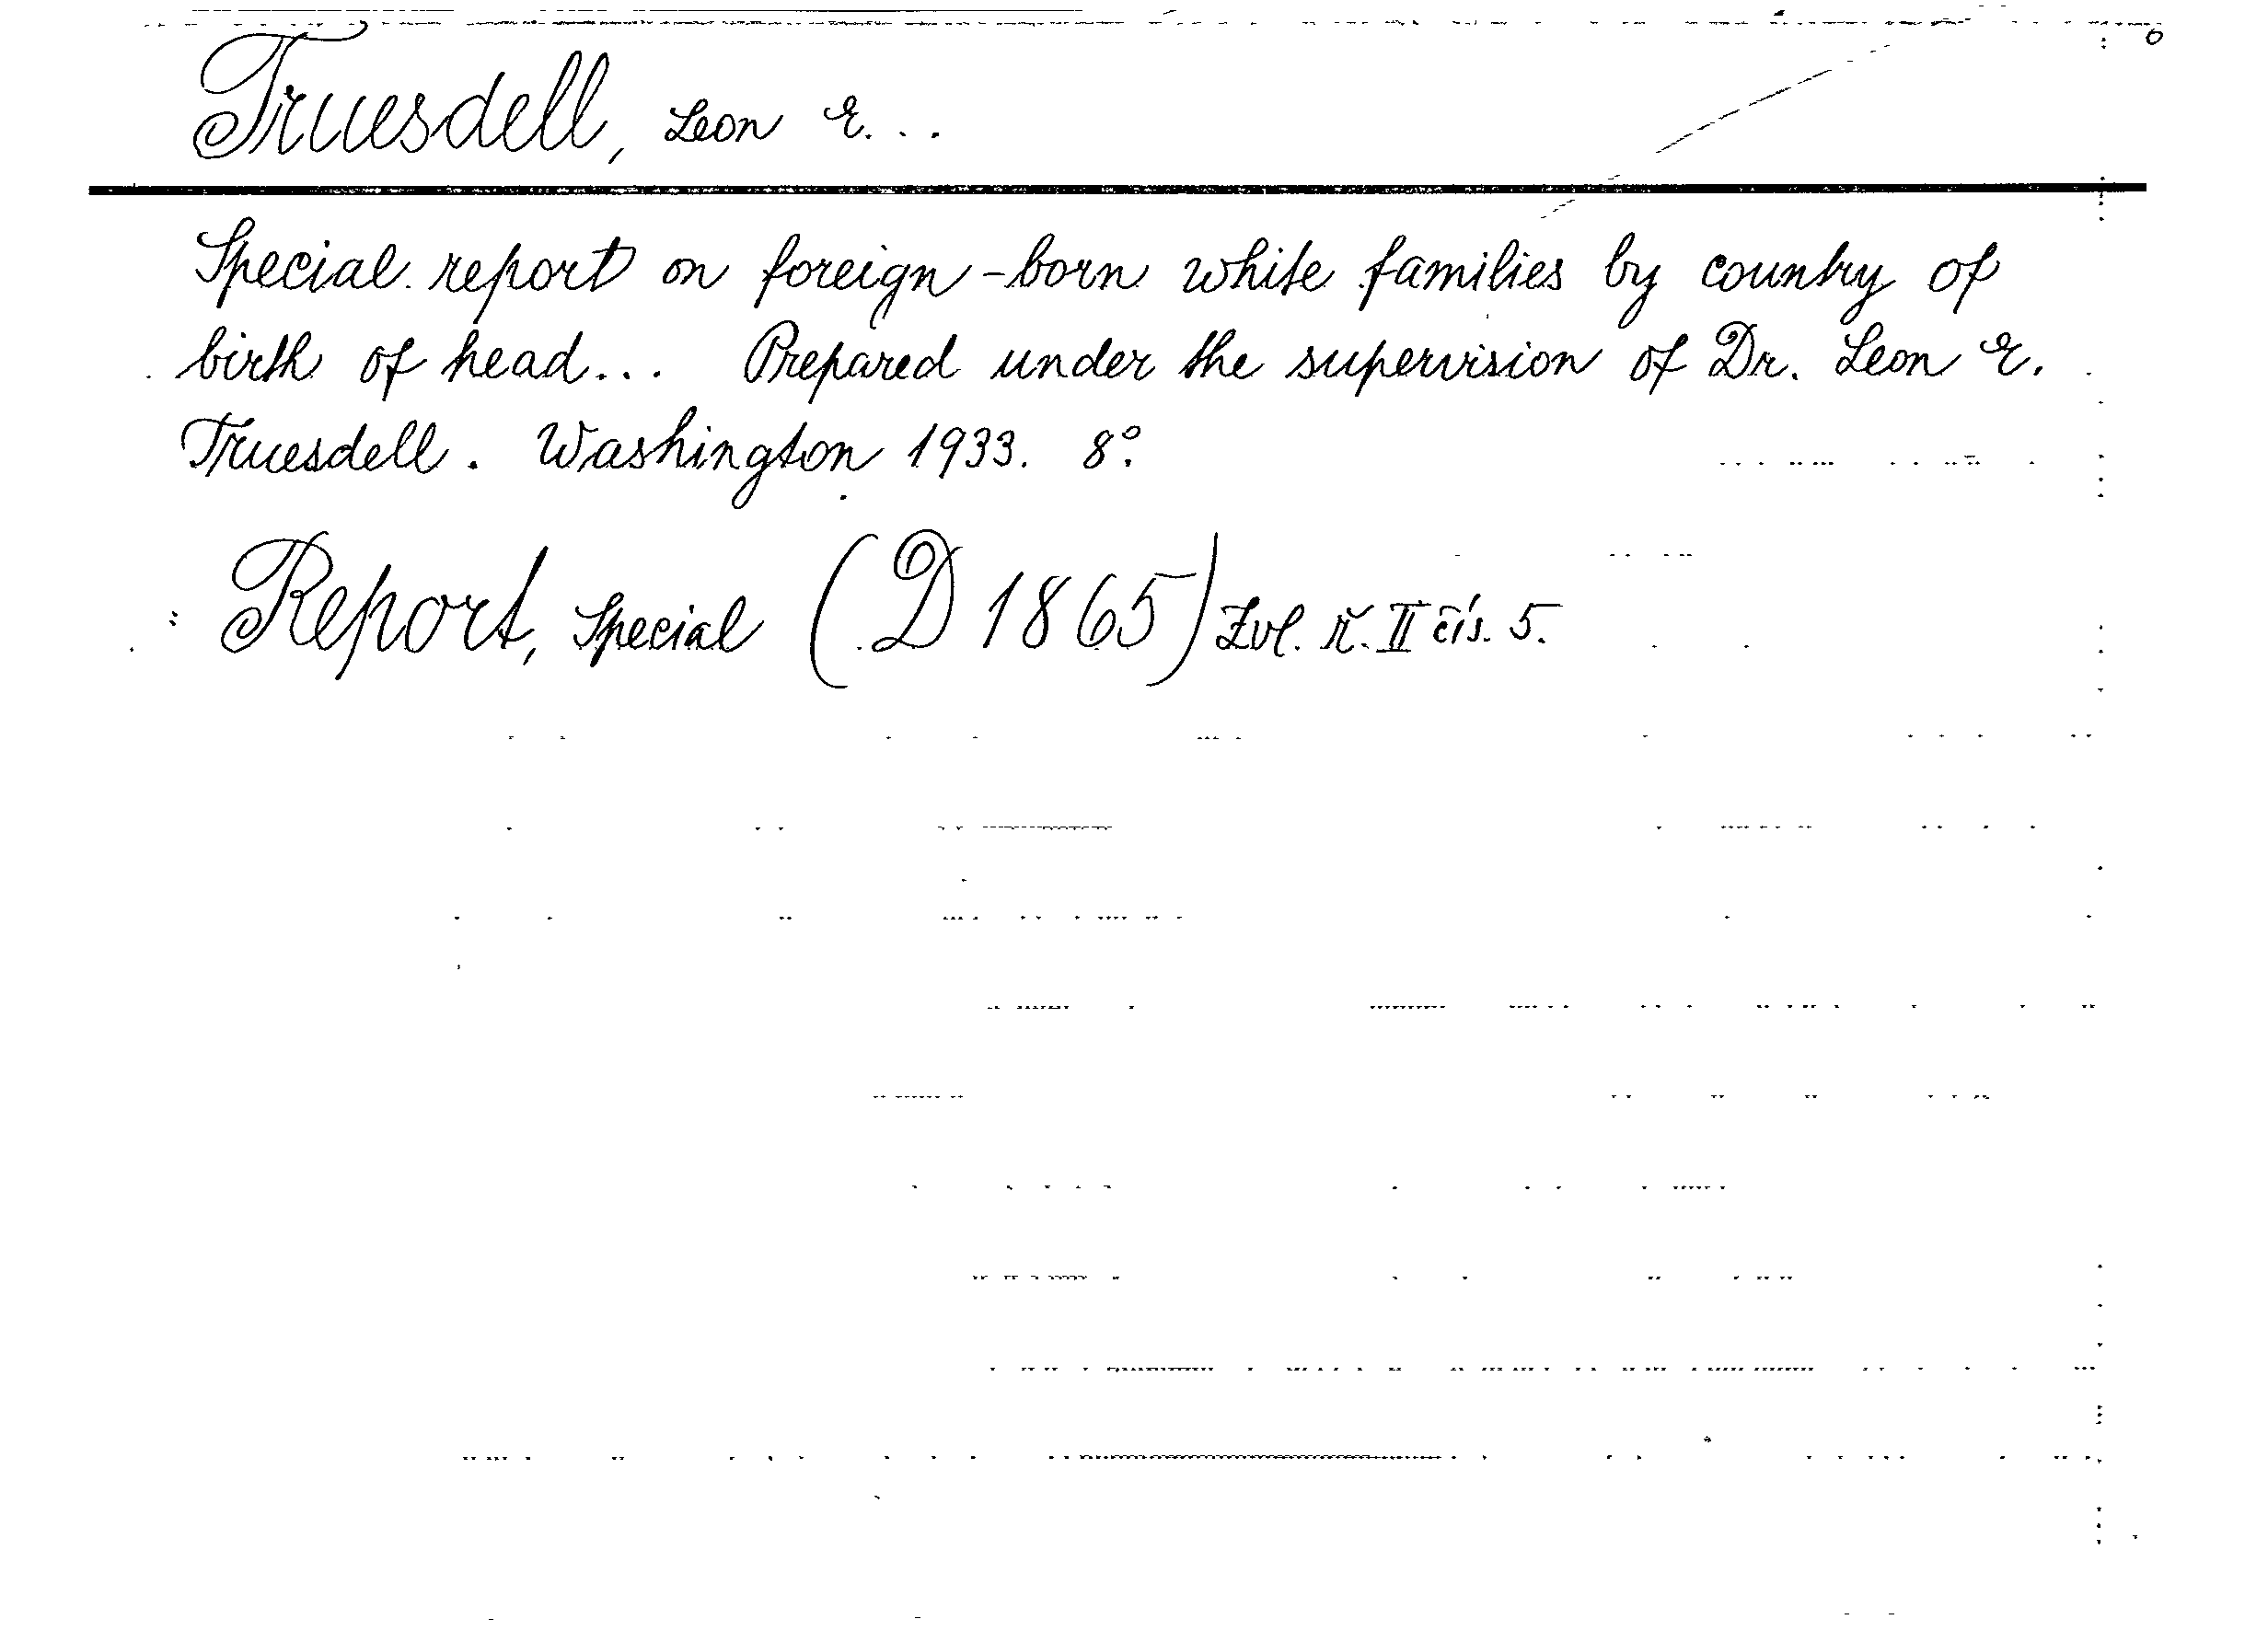 Truesdell, Leon E...
Special report on foreign-born white families by country of
birth of head... Prepared under the supervision of Dr. Leon E.
Truesdell. Washington 1933. 8°.
Report, Special (D 1865) Zvl. ř. II čís. 5.